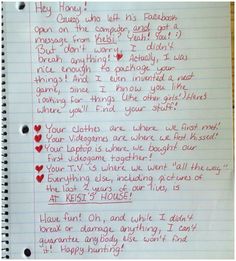 Hey Honey!
Guess who left his Facebook
open on the computer and got a
message from Keisi? Yeah! You! :)
But don't worry, I didn't
break anything! Actually, I was
nice enough to package your
things! And I even invented a neat
game, since I know you like
looking for things like other girls! Here's
where you'll find your stuff!
Your clothes are where we first met!
Your videogames are where we first kissed!
Your laptop is where we bought our
first videogame together!
Your T.V is where we went "all the way"
Everything else, including pictures of
the last 2 years of our lives, is
AT KEISI'S HOUSE!
Have fun! Oh, and while I didn't
break or damage anything, I can't
guarantee anybody else won't find
it! Happy hunting!